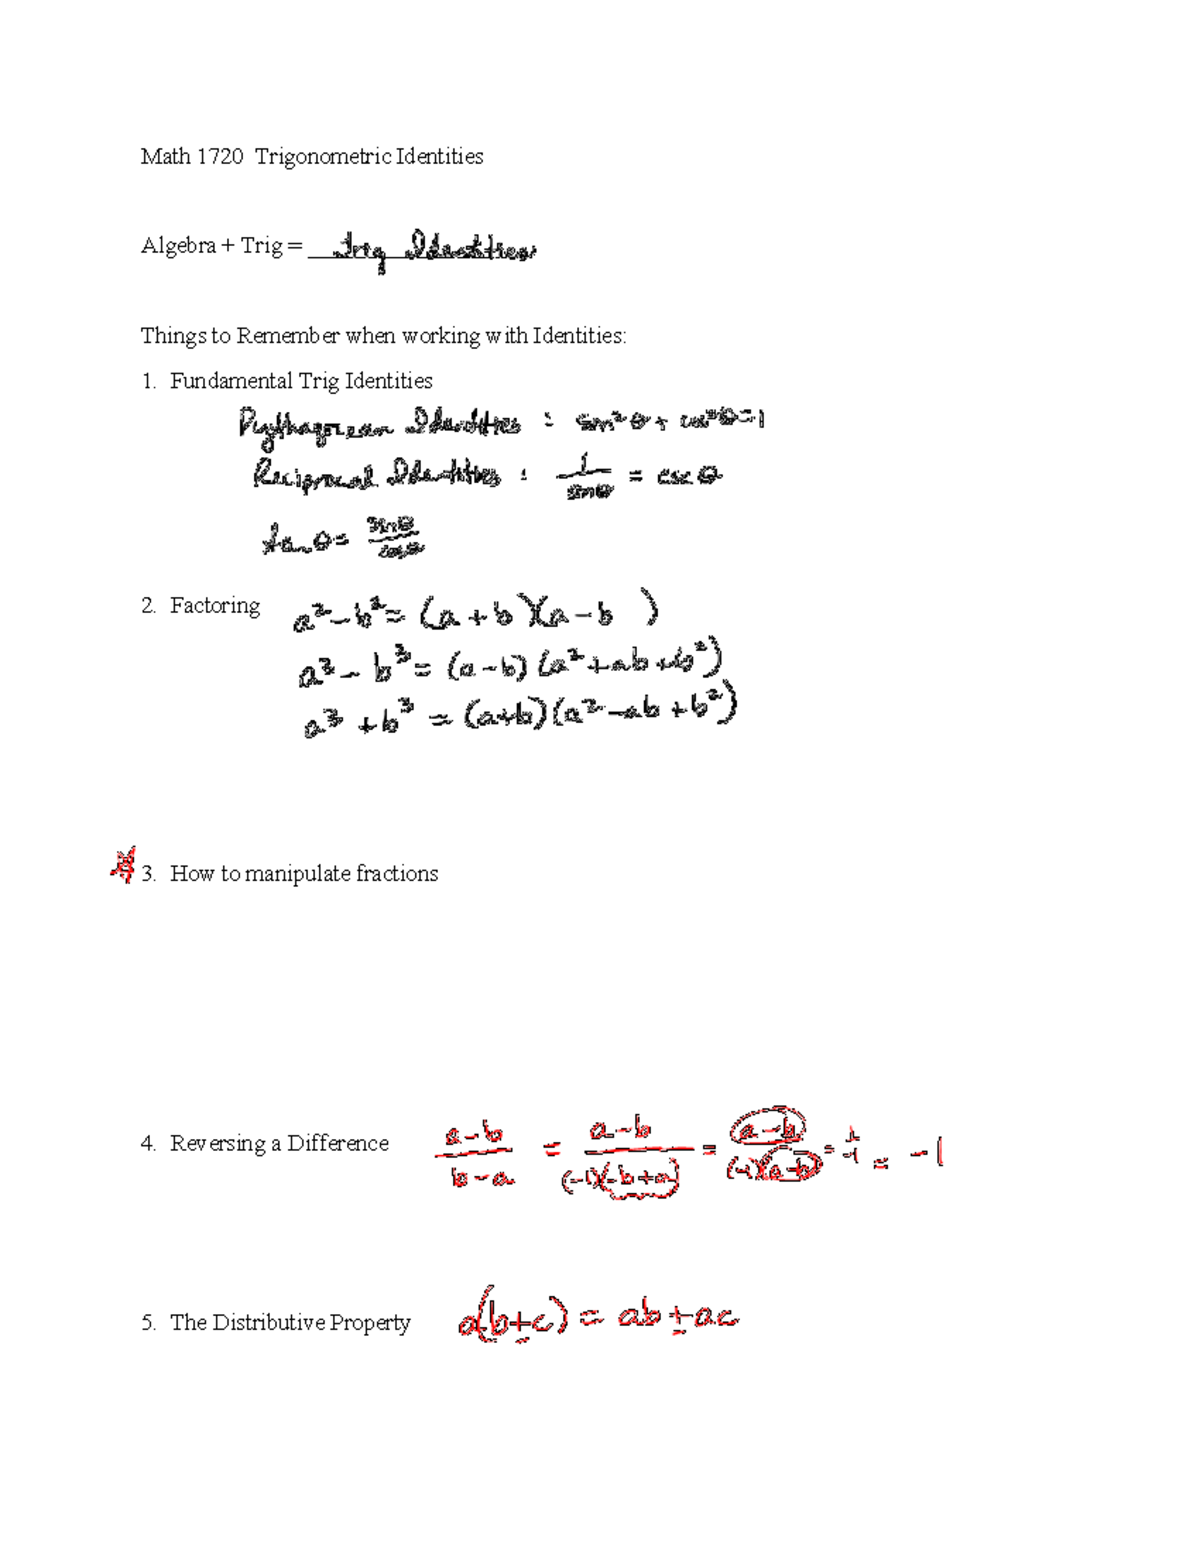 Math 1720 Trigonometric Identities
Algebra + Trig = Trig Identities
Things to Remember when working with Identities:
1. Fundamental Trig Identities
Pythagorean Identities : sin²θ + cos²θ = 1
Reciprocal Identities : 1/sinθ = csc θ
tan θ = sinθ/cosθ
2. Factoring a² - b² = (a + b)(a - b )
a³ - b³ = (a - b) (a² + ab + b²)
a³ + b³ = (a + b)(a² - ab + b²)
3. How to manipulate fractions
4. Reversing a Difference (a-b)/(b-a) = (a-b)/((-1)(-b+a)) = (a-b)/((-1)(a-b)) = 1/-1 = -1
5. The Distributive Property a(b ± c) = ab ± ac